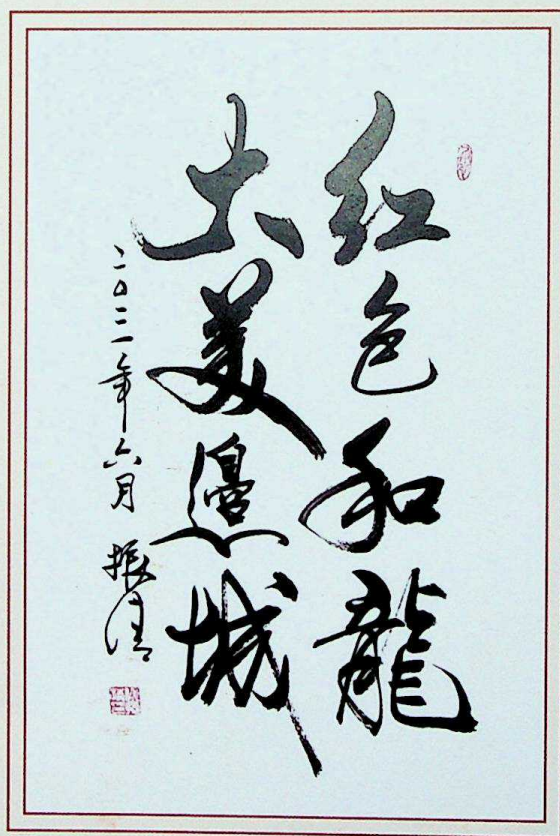 红色和龍
大美邊城
二〇二一年六月 振清